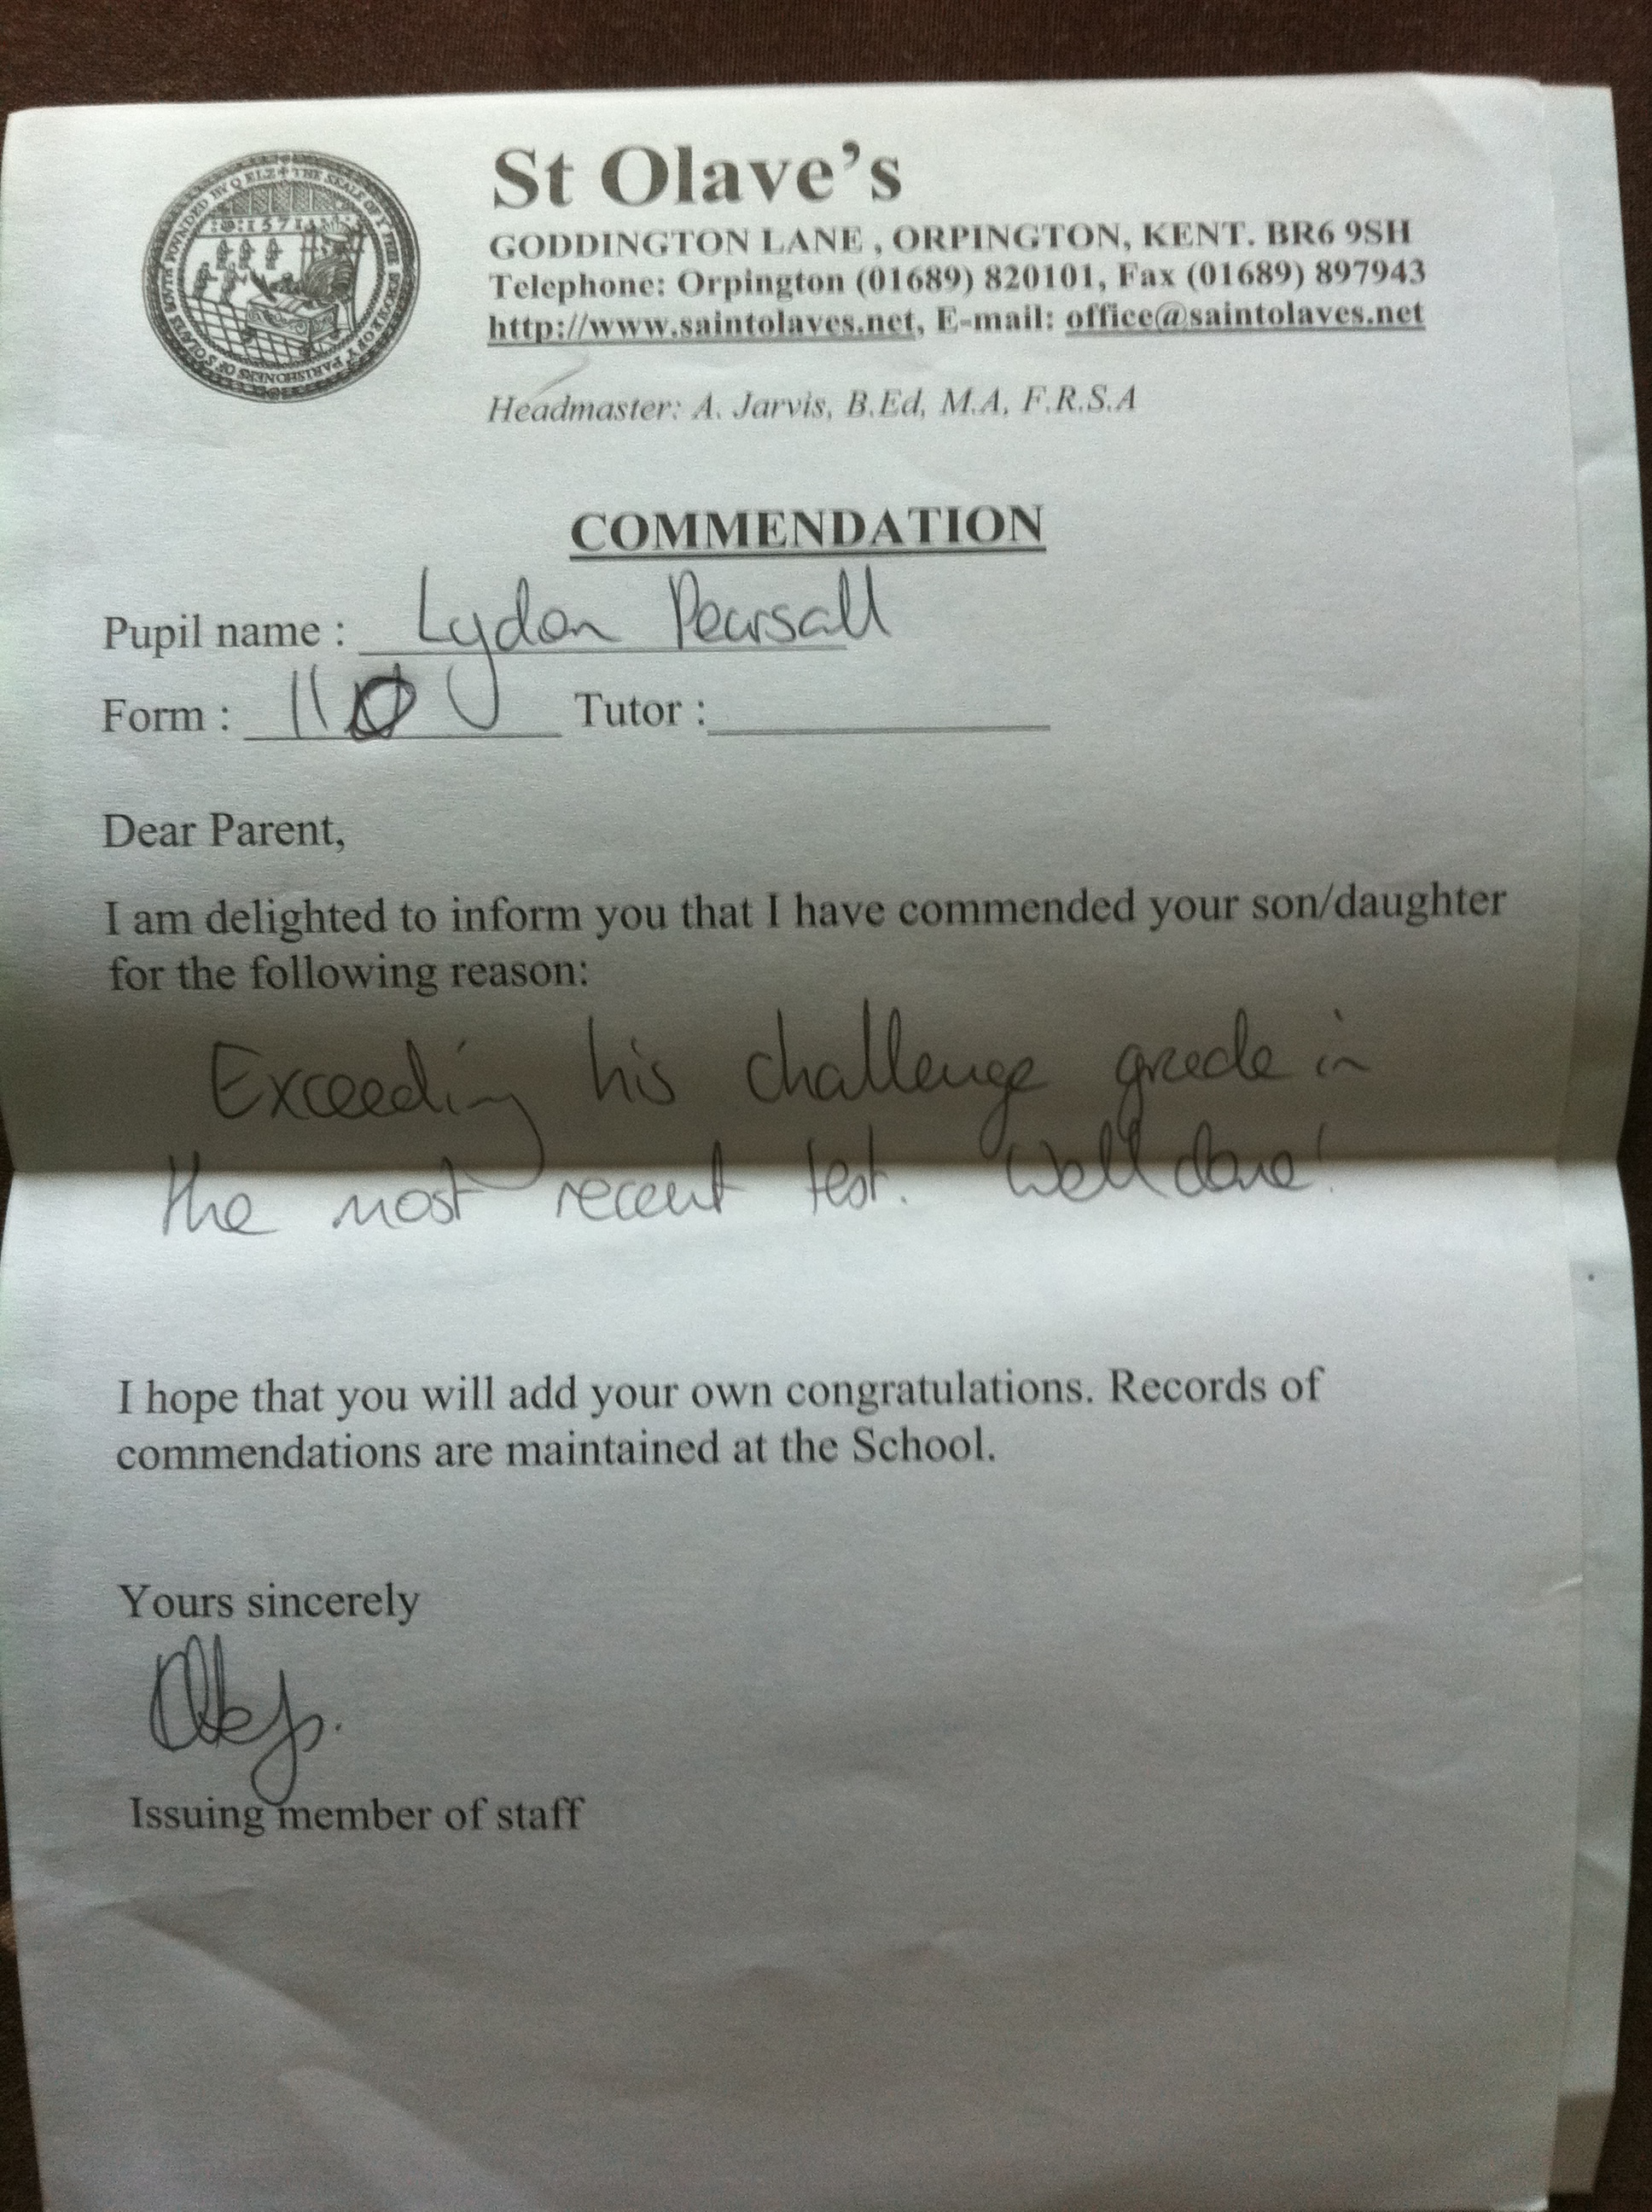 St Olave's
GODDINGTON LANE , ORPINGTON, KENT. BR6 9SH
Telephone: Orpington (01689) 820101, Fax (01689) 897943
http://www.saintolaves.net, E-mail: office@saintolaves.net
Headmaster: A. Jarvis, B.Ed, M.A, F.R.S.A
1571
COMMENDATION
Pupil name : Lydon Pearsall
Form : Tutor :
Dear Parent,
I am delighted to inform you that I have commended your son/daughter
for the following reason:
Exceeding his challenge grade in
the most recent test. Well done!
I hope that you will add your own congratulations. Records of
commendations are maintained at the School.
Yours sincerely
Issuing member of staff